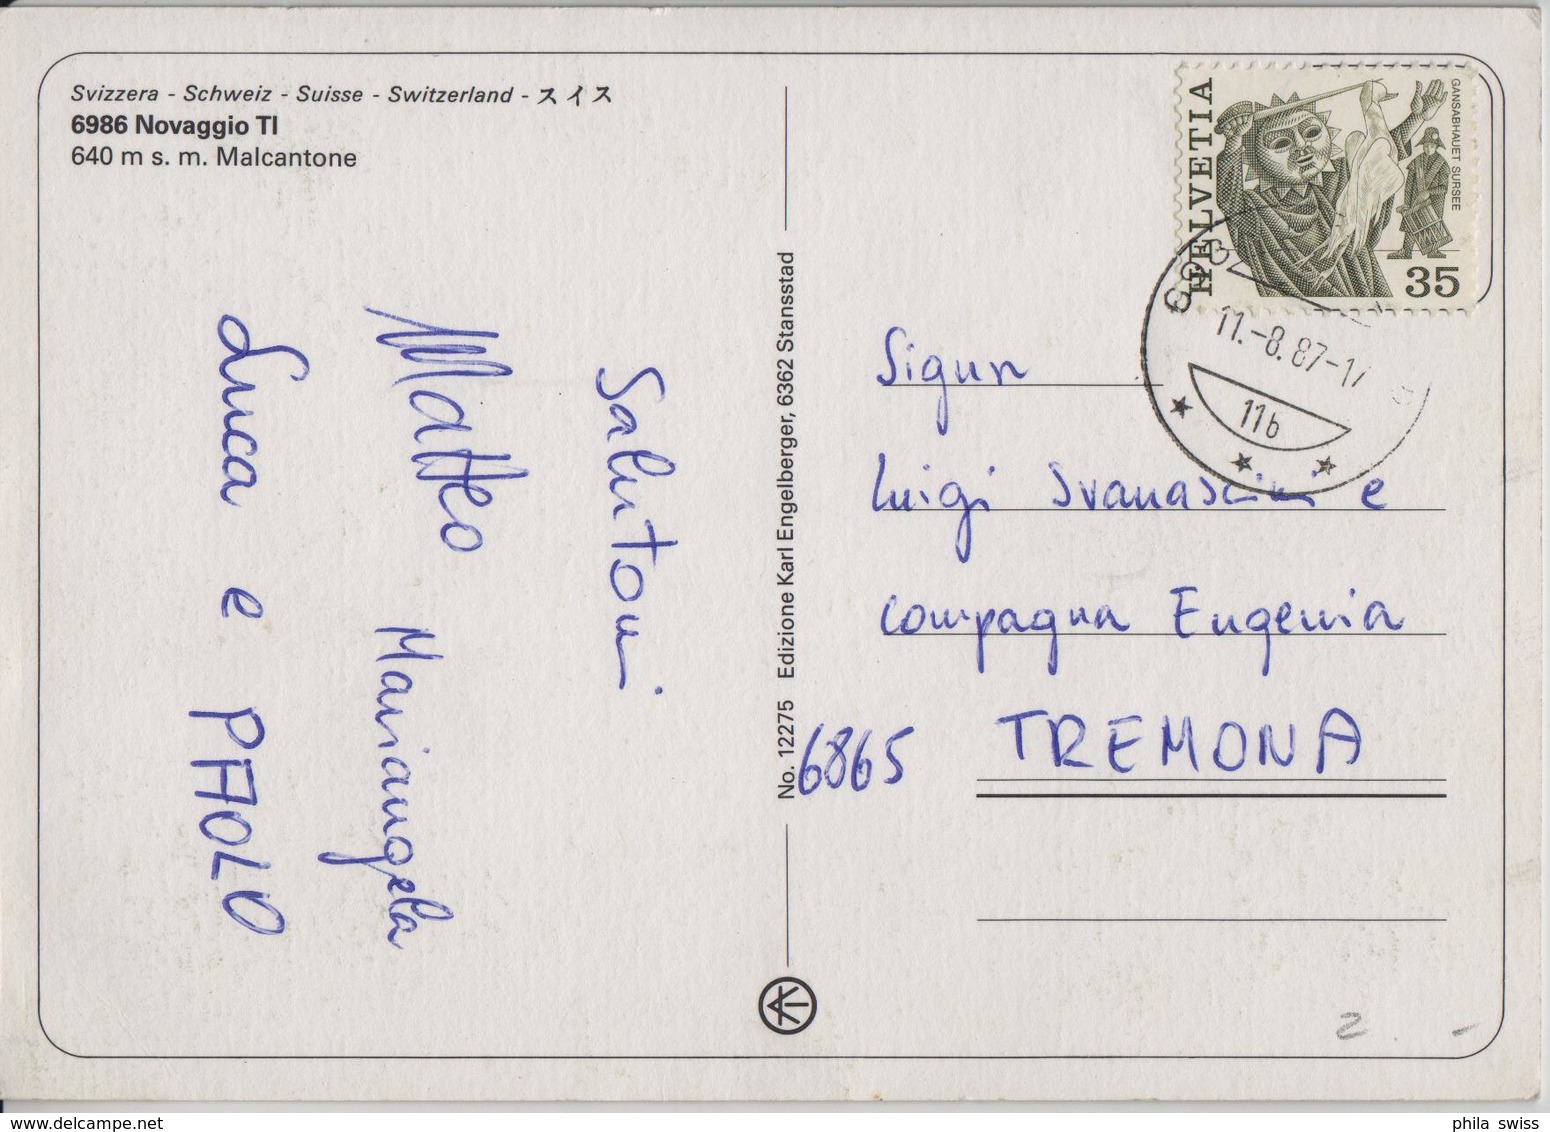 Svizzera - Schweiz - Suisse - Switzerland - スイス
6986 Novaggio TI
640 m s. m. Malcantone
Salutoni
Matteo Mariangela
Luca e PAOLO
No. 12275 Edizione Karl Engelberger, 6362 Stansstad
HELVETIA
GANSABHAUET SURSEE
35
11.-8.87-17
11b
Sigun
Luigi e
compagna Eugenia
6865 TREMONA
phila swiss